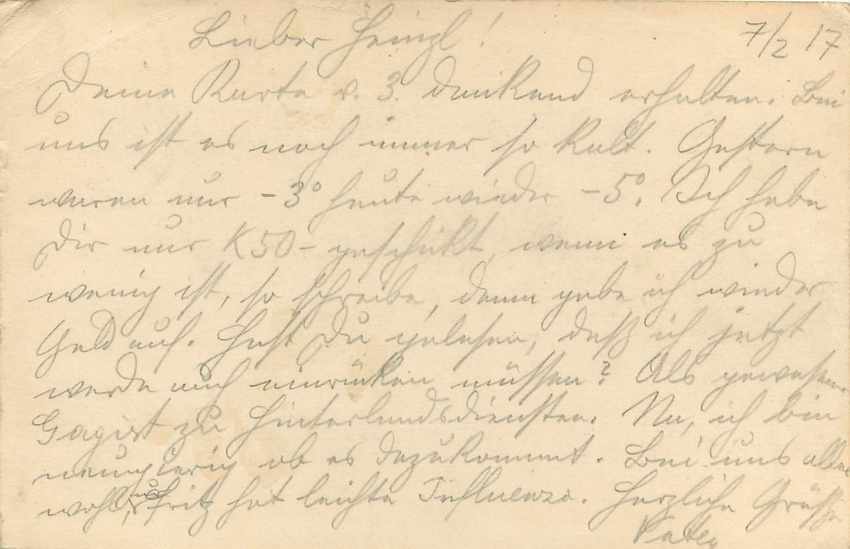 7/2 17
Lieber Heinzl!
Deine Karte v. 3. dankend erhalten. Bei
uns ist es noch immer so kalt. Gestern
waren nur -3° heute wieder -5°. Ich habe
Dir nur K 50- geschikt, wenn es zu
wenig ist, so schreibe, dann gebe ich wieder
Geld auf. Hast Du gelesen, daß ich jetzt
werde auch einrücken müssen? Als gewesener
Gagist zu Hinterlandsdiensten. Na, ich bin
neugierig ob es dazukommt. Bei uns alles
wohl, nur Fritz hat leichte Influenza. Herzliche Grüße
Vater